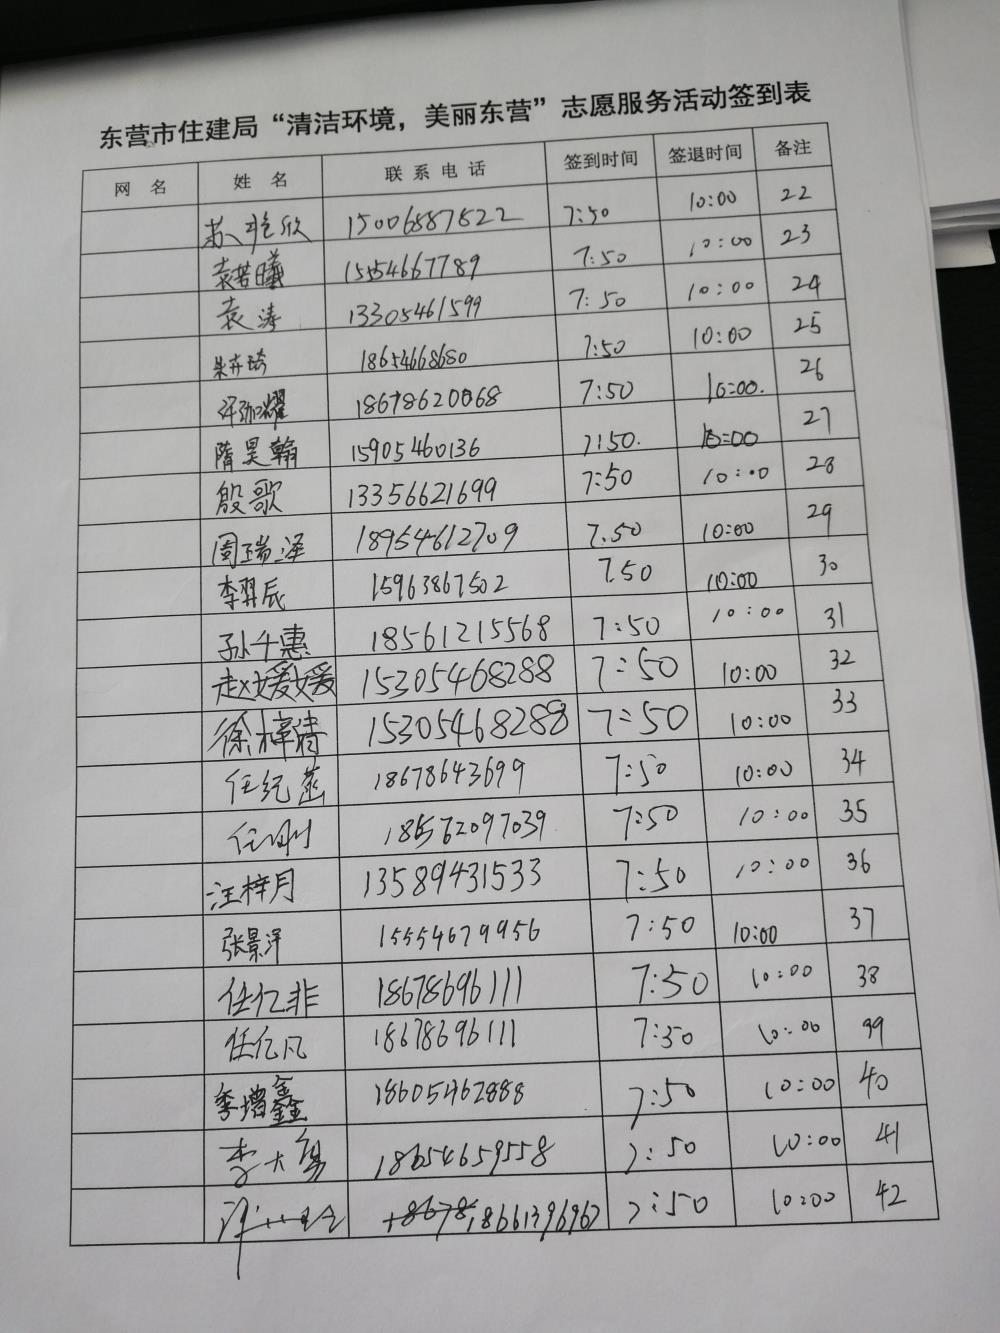 东营市住建局“清洁环境，美丽东营”志愿服务活动签到表
网 名 姓 名 联系电话 签到时间 签退时间 备注
苏艳欣 15006887822 7:50 10:00 22
袁若曦 15554667789 7:50 10:00 23
袁涛 13305461599 7:50 10:00 24
18654668680 7:50 10:00 25
18678620068 7:50 10:00 26
隋昊翰 15905460136 7:50 10:00 27
殷歌 13356621699 7:50 10:00 28
周瑞泽 18954612709 7.50 10:00 29
李羿辰 15963867502 7.50 10:00 30
孙千惠 18561215568 7:50 10:00 31
赵媛媛 15305468288 7:50 10:00 32
徐梓清 15305468288 7:50 10:00 33
任纪菡 18678643699 7:50 10:00 34
任刚 18562097039 7:50 10:00 35
汪梓月 13589431533 7:50 10:00 36
张景洋 15554679956 7:50 10:00 37
任亿非 18678696111 7:50 10:00 38
任亿凡 18678696111 7:50 10:00 39
李增鑫 18605462888 7:50 10:00 40
李大勇 18654659558 7:50 10:00 41
18661396967 7:50 10:00 42